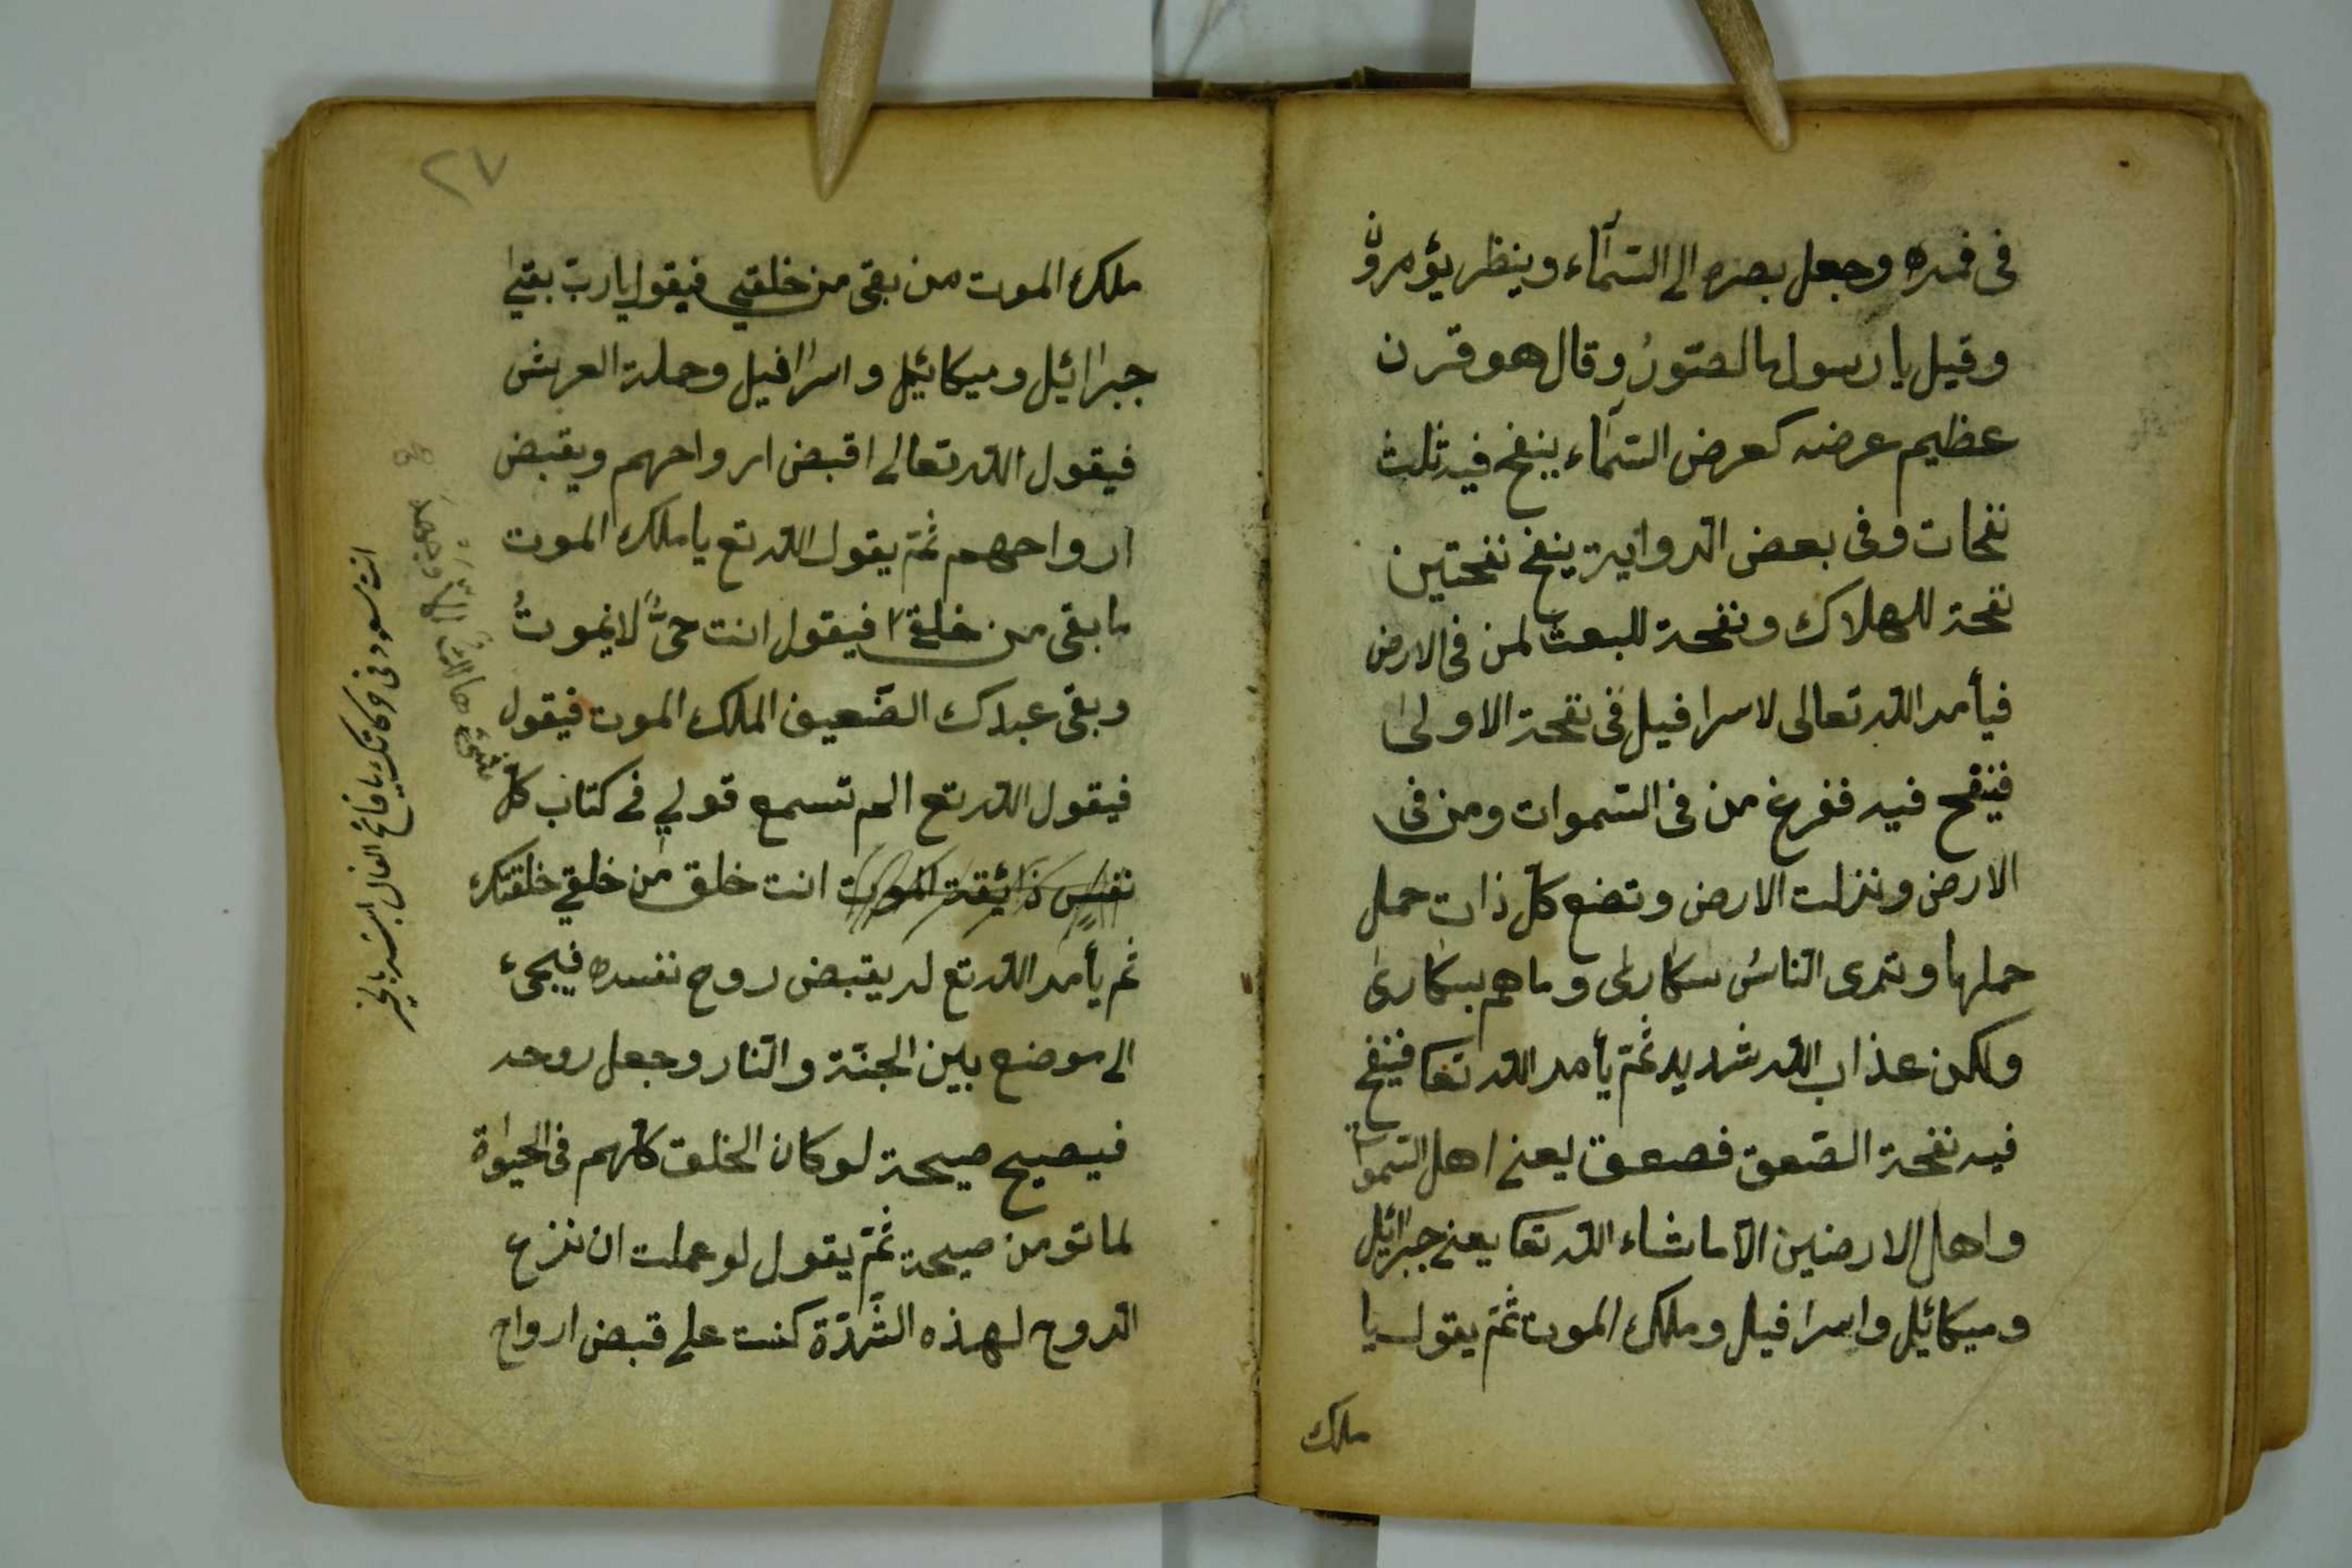 فى فمه وجعل بصره الى السّمآء وينظر يؤمرون
وقيل يا رسول ما الصّورُ وقال هو قرن
عظيم عرضه كعرض السّمآء ينفخ فيه ثلث
نفحات وفى بعض الرواية ينفخ نفختين
نفحة للهلاك ونفحة للبعث لمن فى الارض
فيأمر الله تعالى لاسرافيل فى نفحة الاولى
فينفح فيه ففرغ من فى السّموات ومن فى
الارض ونزلت الارض وتضع كلّ ذات حمل
حملها وترى النّاسُ سكارى وماهم بسكارى
ولكن عذاب الله شديد ثمّ يأمر الله تعا فينفخ
فيه نفحة الصّعق فصعق يعنى اهل السّموات
واهل الارضين الّا ماشاء الله تعا يعنى جبرائيل
وميكائيل واسرافيل وملك الموت ثمّ يقول يا
ملك
٢٧
ملك الموت من بقى من خلقى فيقول يا ربّ بقى
جبرائيل وميكائيل واسرافيل وحملة العرش
فيقول الله تعالى اقبض ارواحهم ويقبض
ارواحهم ثمّ يقول الله تع يا ملك الموت
ما بقى من خلقى فيقول انت حىٌّ لا يموتُ
وبقى عبدك الضّعيف الملك الموت فيقول
فيقول الله تع الم تسمع قولي فى كتاب كلّ
نفسٍ ذَائِقَةُ الموت انت خلق من خلقي خلقتك
ثم يأمر الله تع له يقبض روح نفسه فيجىء
الى موضع بين الجنّة والنّار وجعل روحه
فيصيح صيحة لو كان الخلق كلّهم فى الحيوة
لماتو من صيحة ثمّ يقول لو عملت ان نزع
الروح لهذه الشّدّة كنت على قبض ارواح